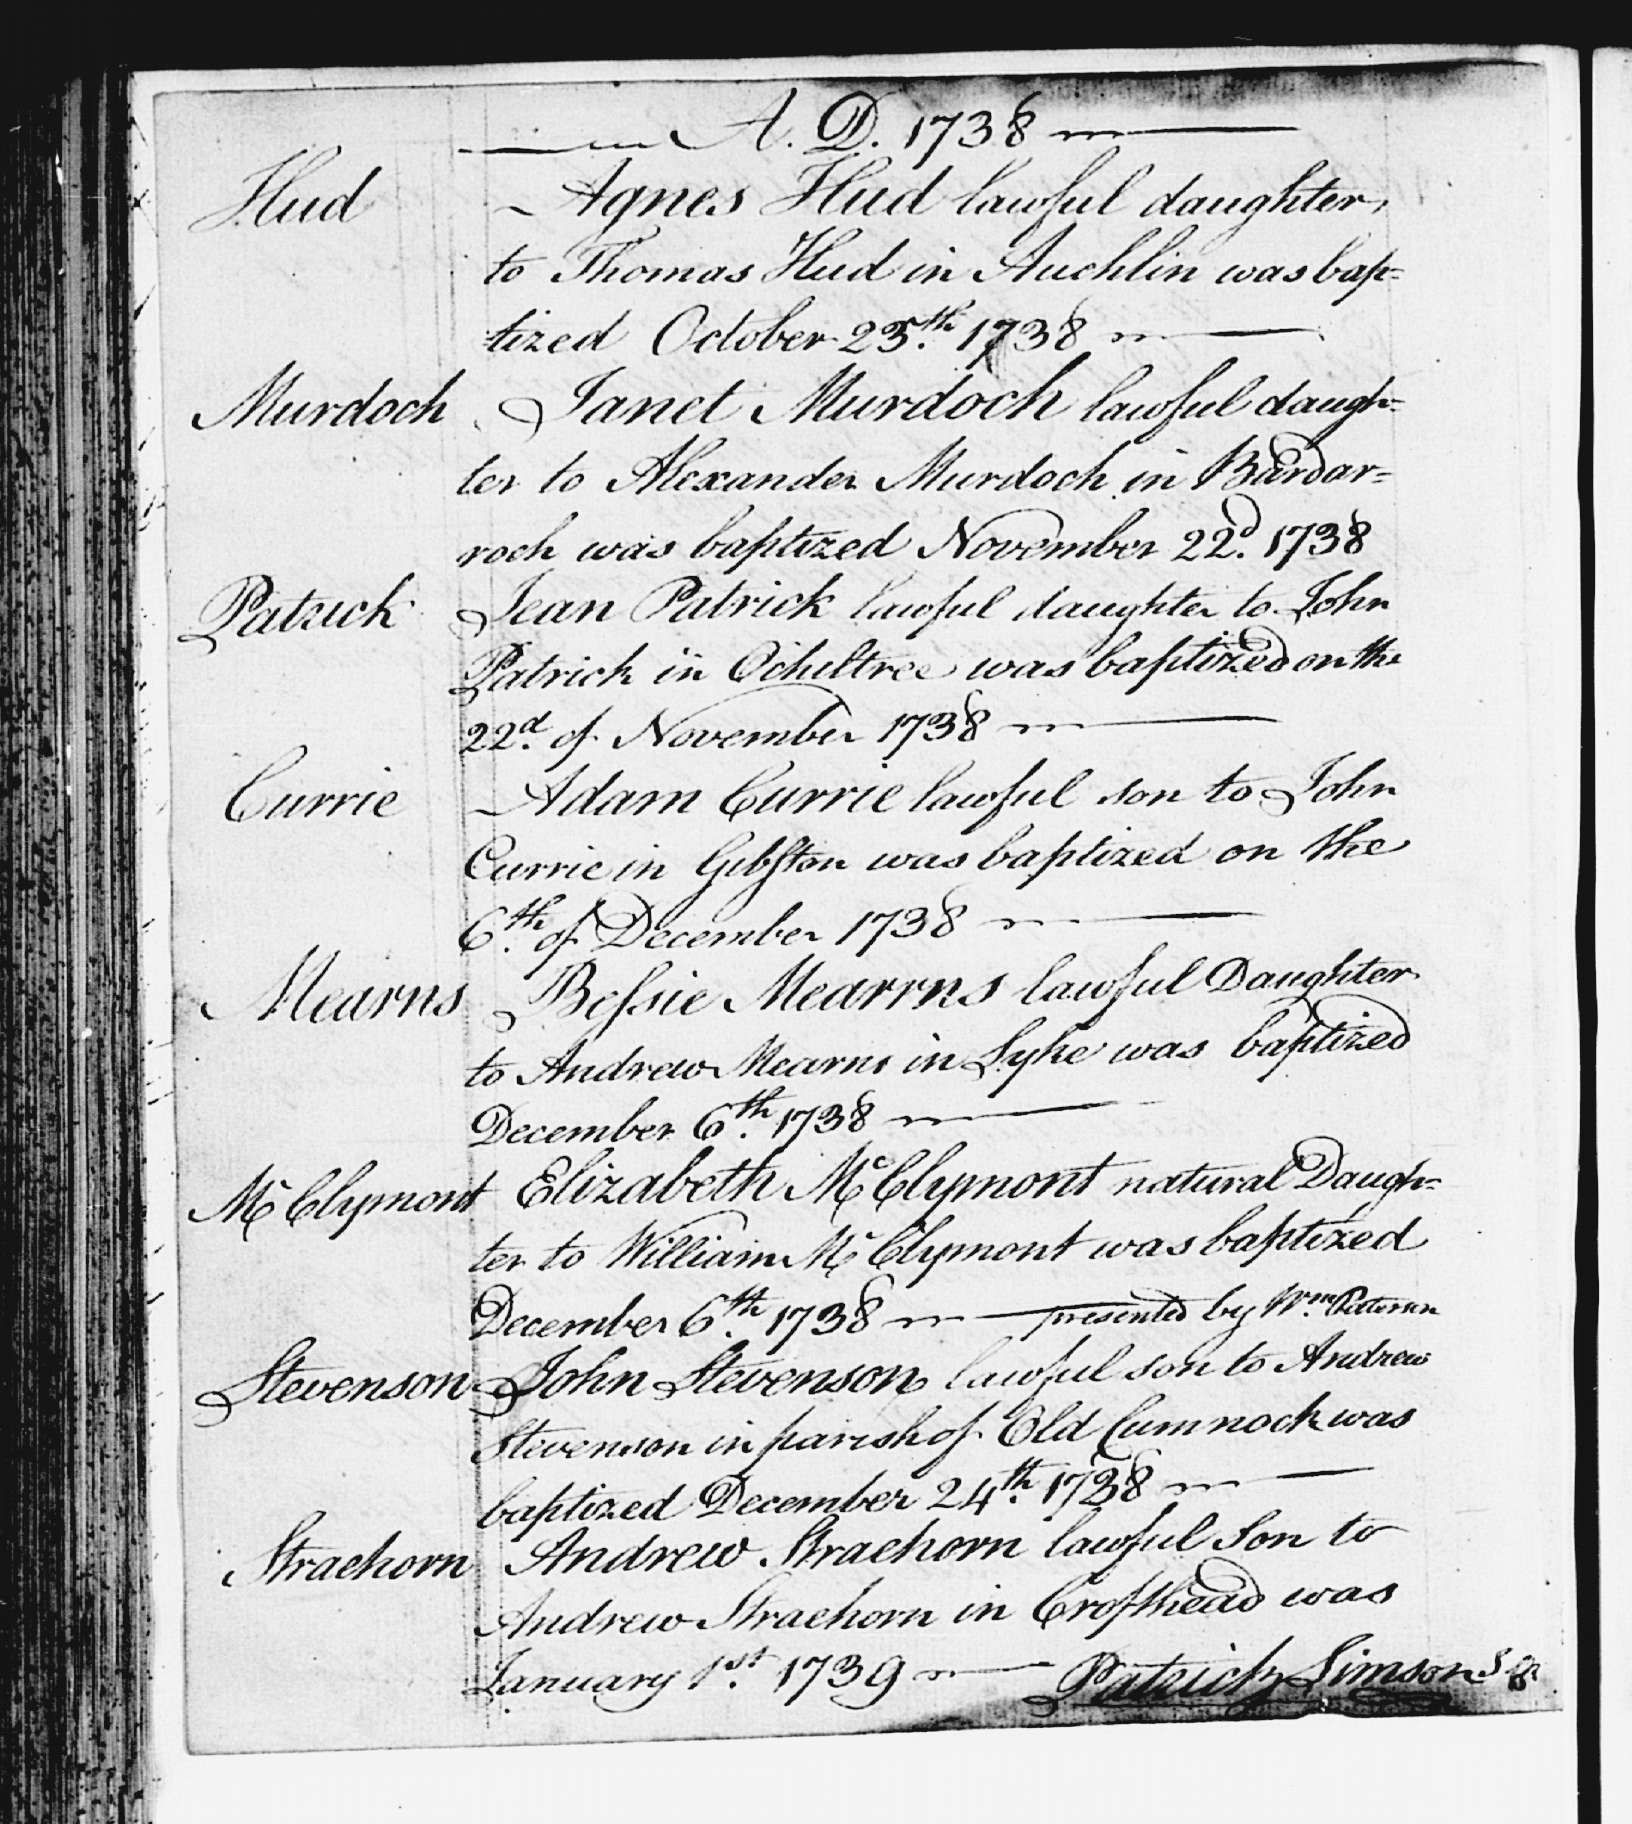 A. D. 1738
Hud Agnes Hud lawful daughter
to Thomas Hud in Auchlin was bap=
tized October 25th. 1738
Murdoch Janet Murdoch lawful daugh=
ter to Alexander Murdoch in Bardar=
roch was baptized November 22d. 1738
Patrick Jean Patrick lawful daughter to John
Patrick in Ochiltree was baptized on the
22d. of November 1738
Currie Adam Currie lawful son to John
Currie in Gibston was baptized on the
6th. of December 1738
Mearns Bessie Mearrns lawful Daughter
to Andrew Mearns in Syke was baptized
December 6th. 1738
McClymont Elizabeth McClymont natural Daugh=
ter to William McClymont was baptized
December 6th. 1738 presented by Wm. Paterson
Stevenson John Stevenson lawful son to Andrew
Stevenson in parish of Old Cumnock was
baptized December 24th. 1738
Straehorn Andrew Straehorn lawful Son to
Andrew Straehorn in Crofthead was
January 1st. 1739 Patrick Simson